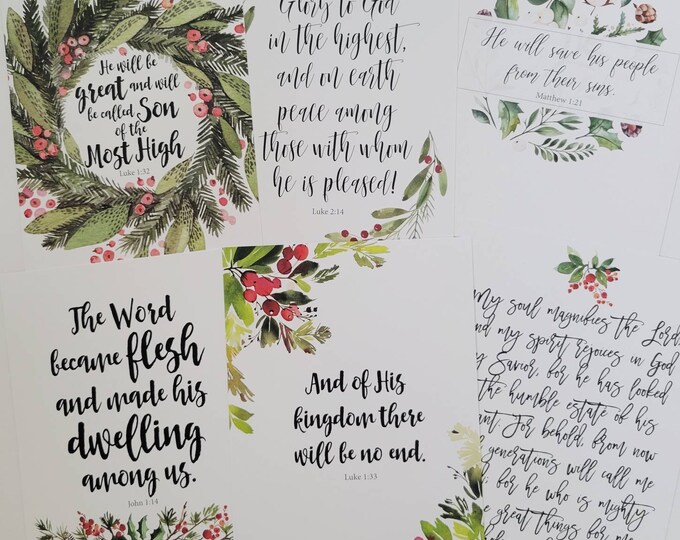 He will be
great and will
be called Son
of the
Most High
Luke 1:32
Glory to God
in the highest,
and on earth
peace among
those with whom
he is pleased!
Luke 2:14
He will save his people
from their sins.
Matthew 1:21
The Word
became flesh
and made his
dwelling
among us.
John 1:14
And of His
kingdom there
will be no end.
Luke 1:33
My soul magnifies the Lord
my spirit rejoices in God
Savior, for he has looked
the humble estate of his
For behold, from now
generations will call me
for he who is mighty
great things for me